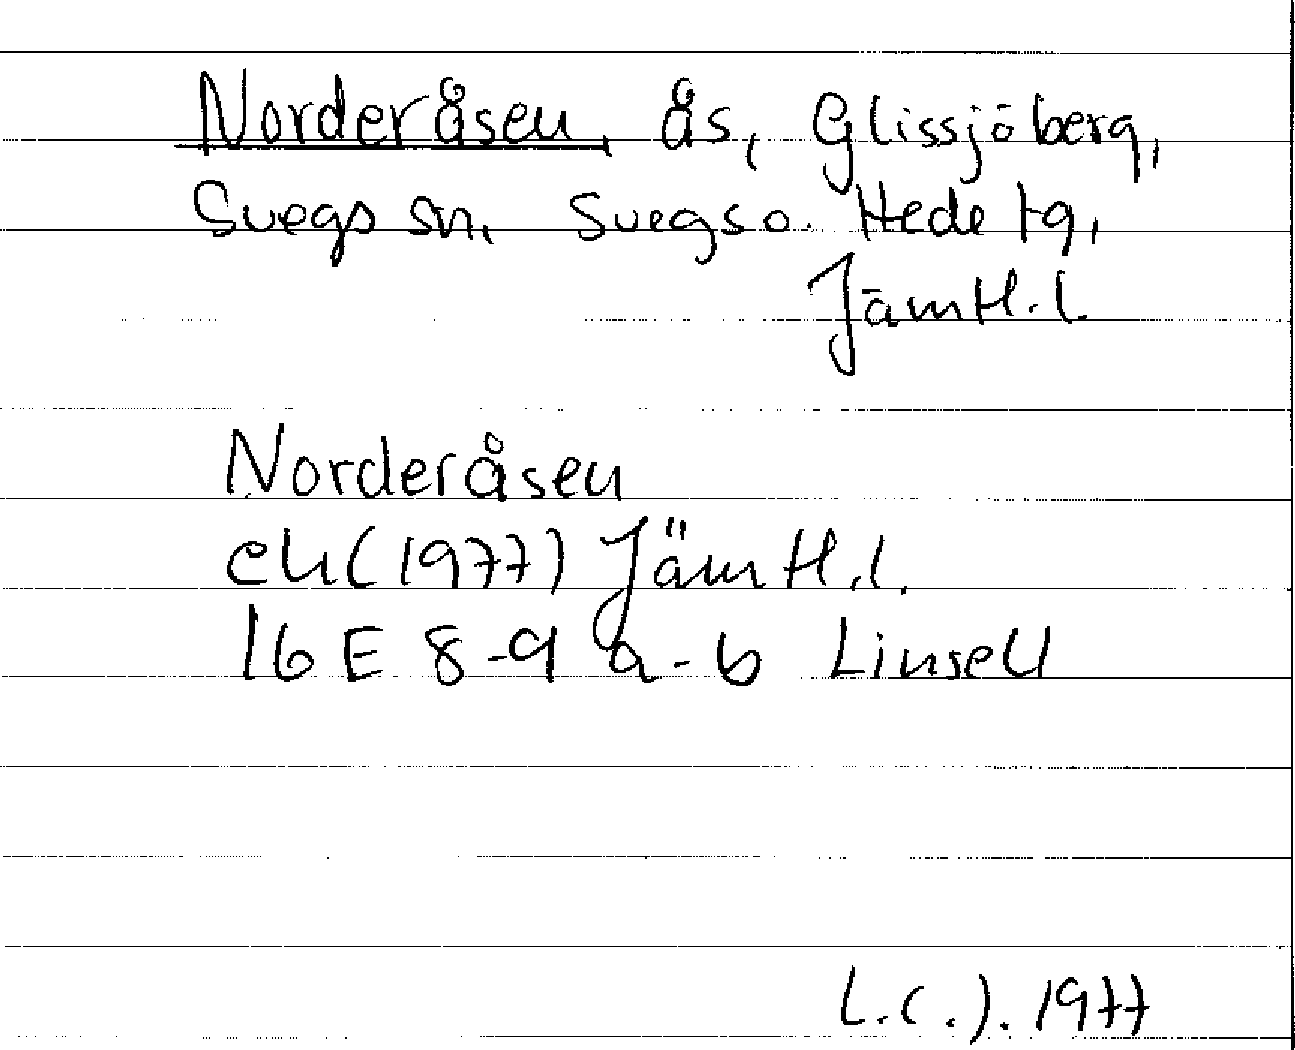 Norderåsen, ås, Glissjöberg,
Svegs sn, Svegs o. Hede tg,
Jämtl. l.
Norderåsen
ek (1977) Jämtl. l.
16 E 8-9 a-b Linsell
L.C.J. 1977